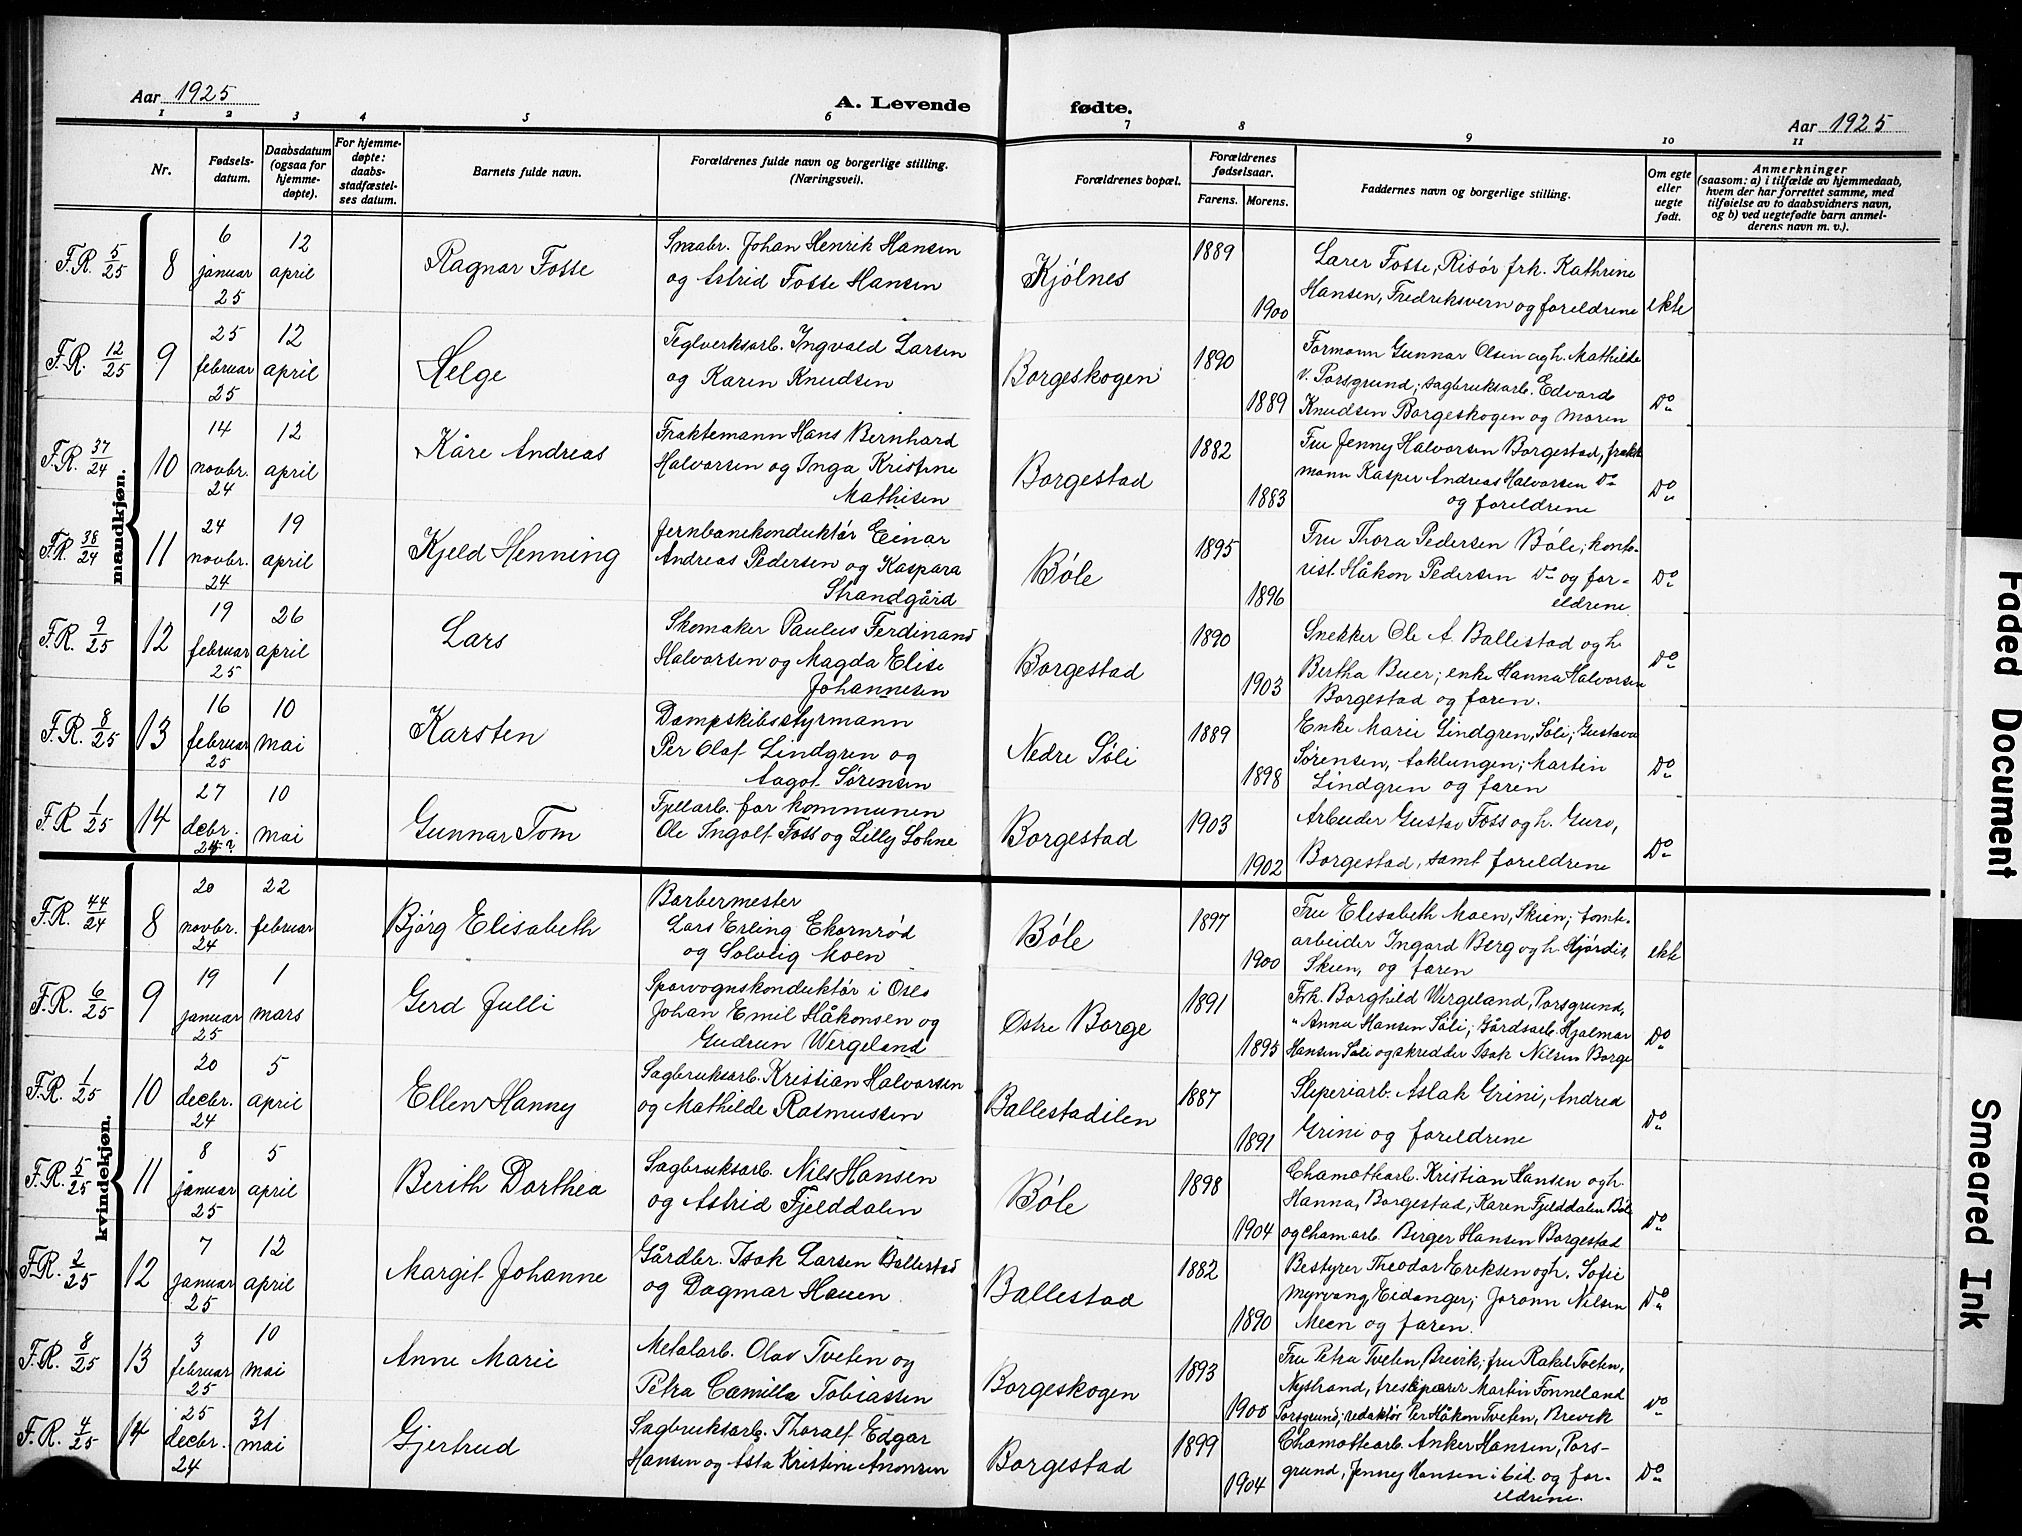 Aar 1925
A. Levende
fødte.
Aar 1925
1 2 3 4 5 6 7 8 9 10 11
Nr.
Fødsels-
datum.
Daabsdatum
(ogsaa for
hjemme-
døpte).
For hjemme-
døpte:
daabs-
stadfæstel-
ses datum.
Barnets fulde navn.
Forældrenes fulde navn og borgerlige stilling.
(Næringsvei).
Forældrenes bopæl.
Forældrenes
fødselsaar.
Farens. Morens.
Faddernes navn og borgerlige stilling.
Om egte
eller
uegte
født.
Anmerkninger
(saasom: a) i tilfælde av hjemmedaab,
hvem der har forrettet samme, med
tilføielse av to daabsvidners navn,
og b) ved uegtefødte barn anmel-
derens navn m. v.).
mandkjøn.
F.R. 5/25 8
6
januar
25
12
april
Ragnar Fosse
Smaabr. Johan Henrik Hansen
og Astrid Fosse Hansen
Kjölnes
1889
1900
Lærer Fosse, Risør frk. Kathrine
Hansen, Fredriksvern og foreldrene
ekte
F.R. 12/25 9
25
februar
25
12
april
Helge
Teglverksarb. Ingvald Larsen
og Karen Knudsen
Borgeskogen
1890
1889
Formann Gunnar Olsen og h. Mathilde
V. Porsgrund; sagbruksarb. Edvard
Knudsen Borgeskogen og moren
Do
F.R. 37/24 10
14
novbr.
24
12
april
Kåre Andreas
Fraktemann Hans Bernhard
Halvorsen og Inga Kristine
Mathisen
Borgestad
1882
1883
Fru Jenny Halvorsen Borgestad, frakt
mann Kasper Andreas Halvorsen Do
og foreldrene
Do
F.R. 38/24 11
24
novbr.
24
19
april
Kjeld Henning
Jernbanekonduktør Einar
Andreas Pedersen og Kaspara
Strandgård
Böle
1895
1896
Fru Thora Pedersen Böle; konto-
rist. Håkon Pedersen Do og for-
eldrene
Do
F.R. 9/25 12
19
februar
25
26
april
Lars
Skomaker Paulus Ferdinand
Halvorsen og Magda Elise
Johannesen
Borgestad
1890
1903
Snekker Ole A. Ballestad og h
Bertha Buer; enke Hanna Halvorsen
Borgestad og faren.
Do
F.R. 8/25 13
16
februar
25
10
mai
Karsten
Dampskibsstyrmann
Per Olaf Lindgren og
Aagot Sørensen
Nedre Söli
1889
1898
Enke Marie Lindgren, Söli; Gustava
Sørensen, Aaklungen; Martin
Lindgren og faren
Do
F.R 1/25 14
27
decbr.
24?
10
mai
Gunnar Tom
Fjellarb. for kommunen
Ole Ingolf Foss og Lilly Lohne
Borgestad
1903
1902
Arbeider Gustav Foss og h. Guro,
Borgestad, samt foreldrene
Do
kvindekjøn.
F.R. 44/24 8
20
novbr.
24
22
februar
Bjórg Elisabeth
Barbermester
Lars Erling Ekornrød
og Solveig Moen
Böle
1897
1900
Fru Elisabeth Moen, Skien; tomte-
arbeider Ingard Berg og h. Hjördis,
Skien, og faren
ekte
F.R. 6/25 9
19
januar
25
1
mars
Gerd Julli
Sporvognskonduktør i Oslo
Johan Emil Håkonsen og
Gudrun Wergeland
Østre Borge
1891
1895
Frk. Borghild Wergeland, Porsgrund,
" Anna Hansen Söli; Gårdsarb. Hjalmar
Hansen Söli og skredder Isak Nilsen Borge
Do
F.R. 1/25 10
20
decbr.
24
5
april
Ellen Hanny
Sagbruksarb. Kristian Halvorsen
og Mathilde Rasmussen
Ballestadilen
1887
1891
Sliperiarb. Aslak Grini, Andrea
Grini og foreldrene
Do
F.R. 5/25 11
8
januar
25
5
april
Berith Dorthea
Sagbruksarb. Nils Hansen
og Astrid Fjelddalen
Böle
1898
1904
Chamottearb. Kristian Hansen og h.
Hanna, Borgestad; Karen Fjelddalen Böle
og cham arb. Birger Hansen Borgestad
Do
F.R. 2/25 12
7
januar
25
12
april
Margit Johanne
Gårdbr. Isak Larsen Ballestad
og Dagmar Hauen
Ballestad
1882
1890
Bestyrer Theodor Eriksen og h. Sofie
Myrvang, Eidanger; Joronn Nilsen
Meen og faren.
Do
F.R. 8/25 13
3
februar
25
10
mai
Anne Marie
Metalarb. Olav Tveten og
Petra Camilla Tobiassen
Borgeskogen
1893
1900
Fru Petra Tveten, Brevik; fru Rakel Tveten,
Nystrand, tresliper Martin Fonneland
Porsgrund; redaktør Per Håkon Tveten, Brevik
Do
F.R. 4/25 14
25
decbr.
24
31
mai
Gjertrud
Sagbruksarb. Thoralf Edgar
Hansen og Asta Kristine Anonsen
Borgestad
1899
1904
Chamottearb. Anker Hansen, Pors-
grund, Jenny Hansen i Eid. og for-
eldrene.
Do
Faded Document
Smeared Ink